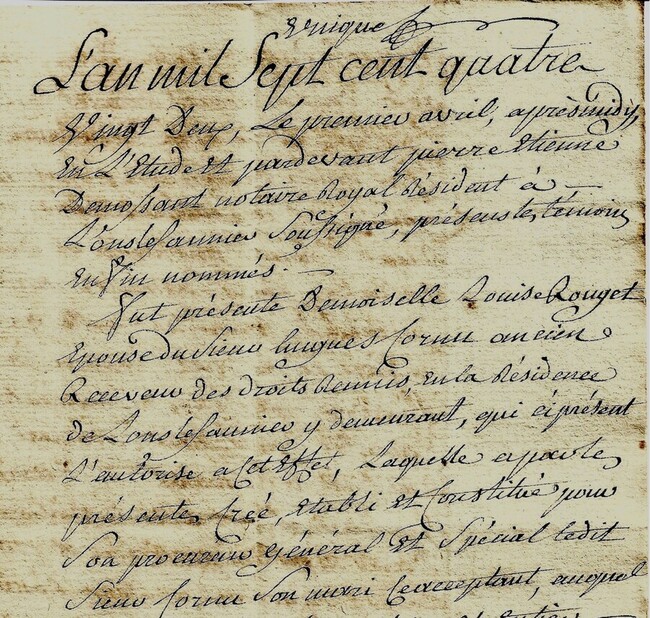 Unique
L'an mil Sept cent quatre
Vingt Deux, Le premier avril, après midy,
En L'Etude Et pardevant pierre Etienne
Demossant notaire Royal Résident à
Lonslesaunier Soussigné, présens les témoins
En fin nommés.
Fut présente Demoiselle Louise Rouget
Epouse du Sieur hugues Cornu ancien
Receveur des droits Reunis, En la Résidence
de Lonslesaunier y demeurant, qui ci présent
L'autorise a Cet Effet, Laquelle a par les
présentes Créé, Etabli et Constitué pour
Son procureur Général Et Spécial ledit
Sieur Cornu Son mari Ce acceptant, auquel